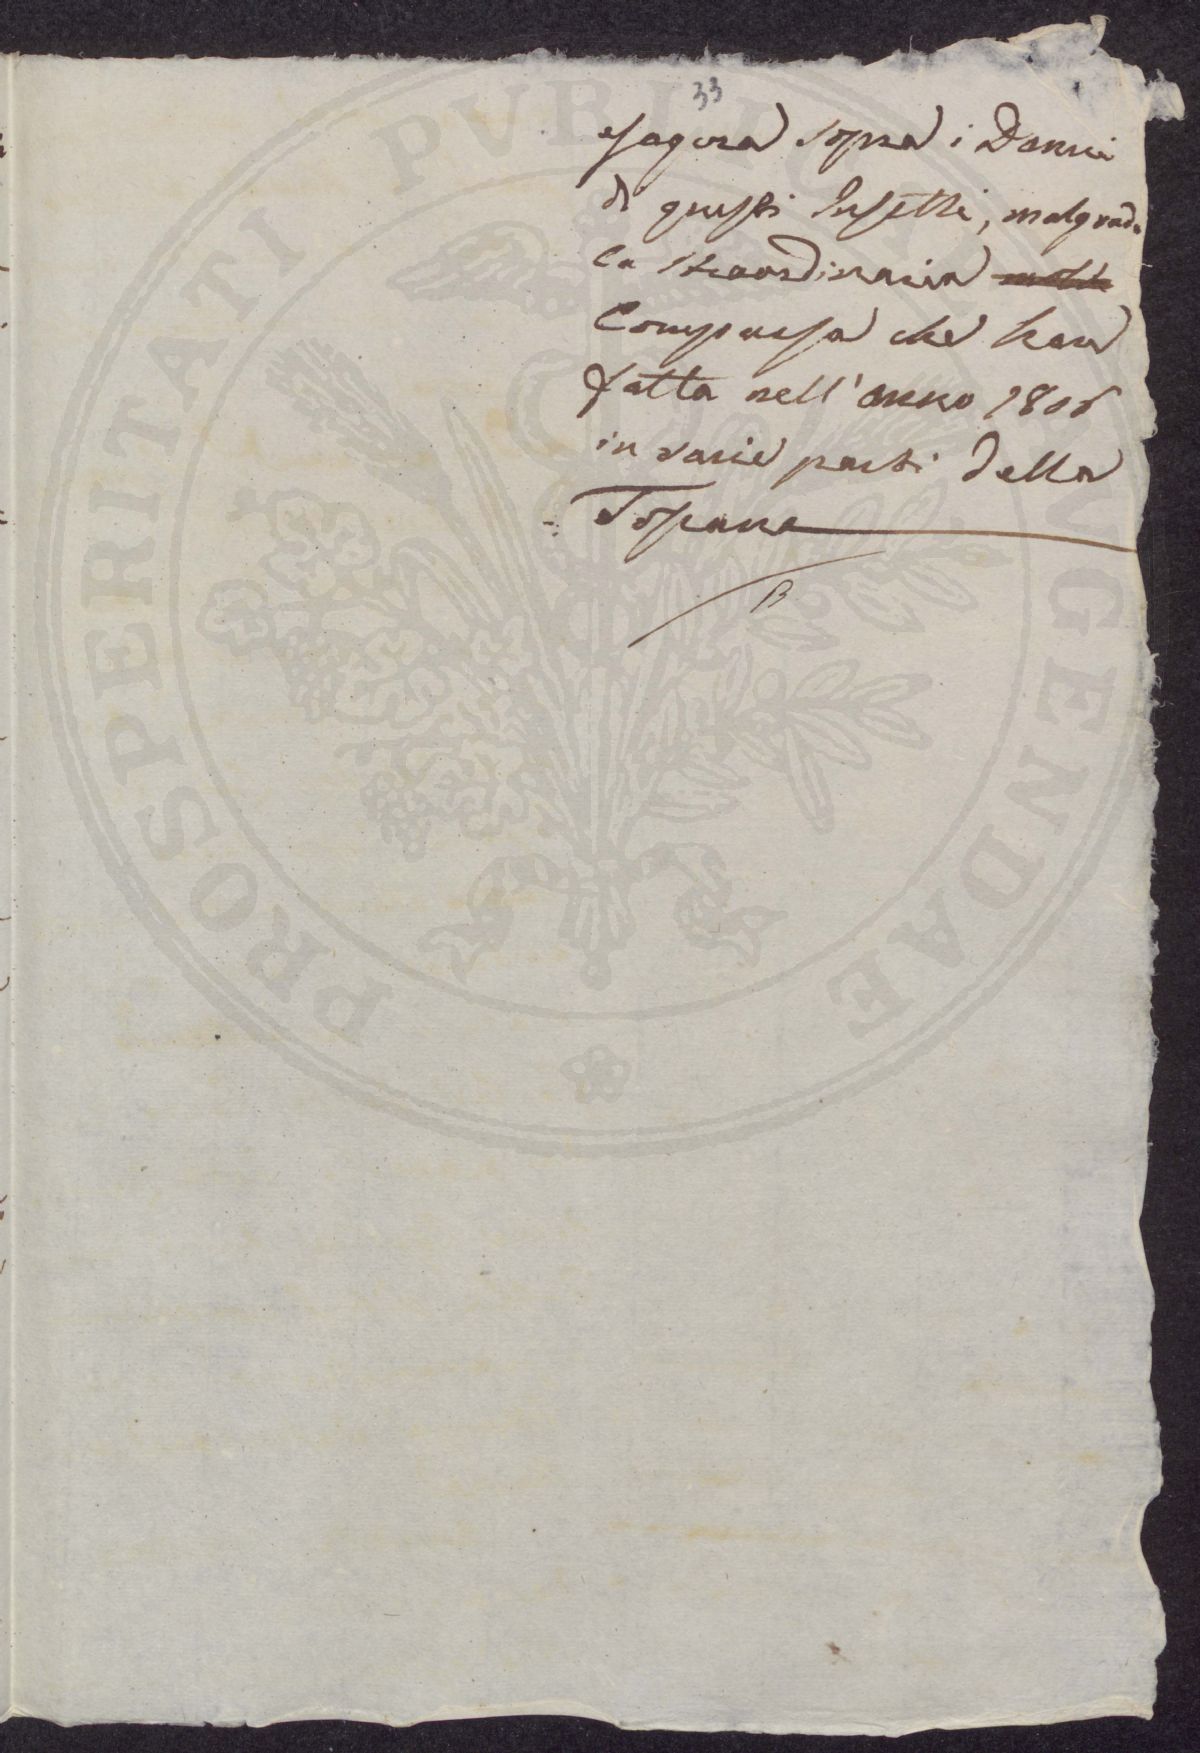 33
esagera sopra i Danni
di questi Insetti, malgrado
la straordinaria
Comparsa che han
fatta nell'anno 1806
in varie parti della
Toscana
B
PROSPERITATI PUBLICAE AUGENDAE